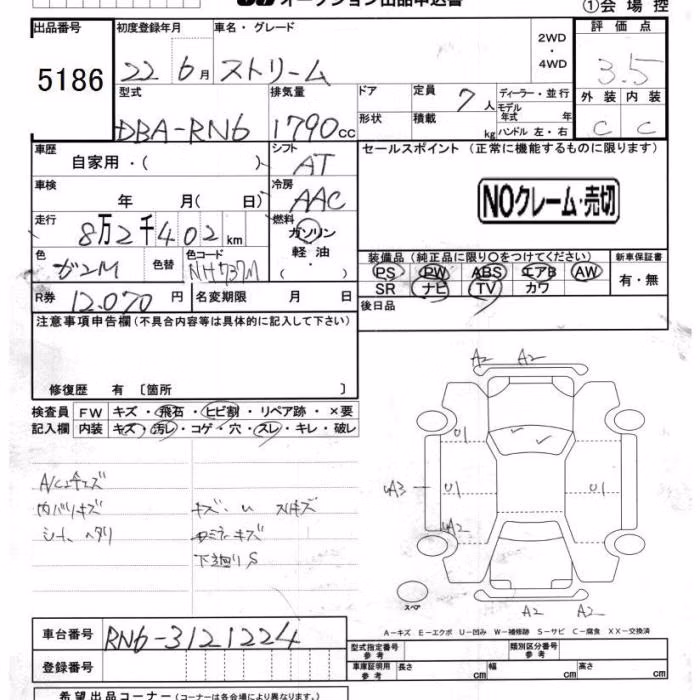 オークション出品申込書
①会場控
出品番号
5186
初度登録年月
22 6月
車名・グレード
ストリーム
2WD
・
4WD
評価点
3.5
外装 内装
C C
型式
DBA-RN6
排気量
1790cc
ドア
形状
定員 7人
積載 kg
ディーラー・並行
モデル
年式 年
ハンドル 左・右
車歴
自家用・( )
シフト
AT
セールスポイント(正常に機能するものに限ります)
NOクレーム・売切
車検
年 月( 日)
冷房
AAC
走行
8万2千402km
燃料
ガソリン
軽油
・( )
色
ガンM
色替
色コード
NH737M
装備品(純正品に限り○をつけてください)
PS PW ABS エアB AW
SR ナビ TV カワ
新車保証書
有・無
R券 12,070円
名変期限 月 日
後日品
注意事項申告欄(不具合内容等は具体的に記入して下さい)
修復歴 有〔箇所 〕
検査員 FW キズ・飛石・ヒビ割・リペア跡・×要
記入欄 内装 キズ・汚レ・コゲ・穴・スレ・キレ・破レ
内バリキズ
シート ヘタリ
キズ・U スリキズ
下廻りS
A2 A2
U1
A3 U1 U1
A2
スペア
A2 A2
A-キズ E-エクボ U-凹み W-補修跡 S-サビ C-腐食 XX-交換済
車台番号 RN6-3121224
登録番号
型式指定番号
参考
類別区分番号
参考
車庫証明用
参考
長さ cm 幅 cm 高さ cm
希望出品コーナー(コーナーは各会場により異なります。)